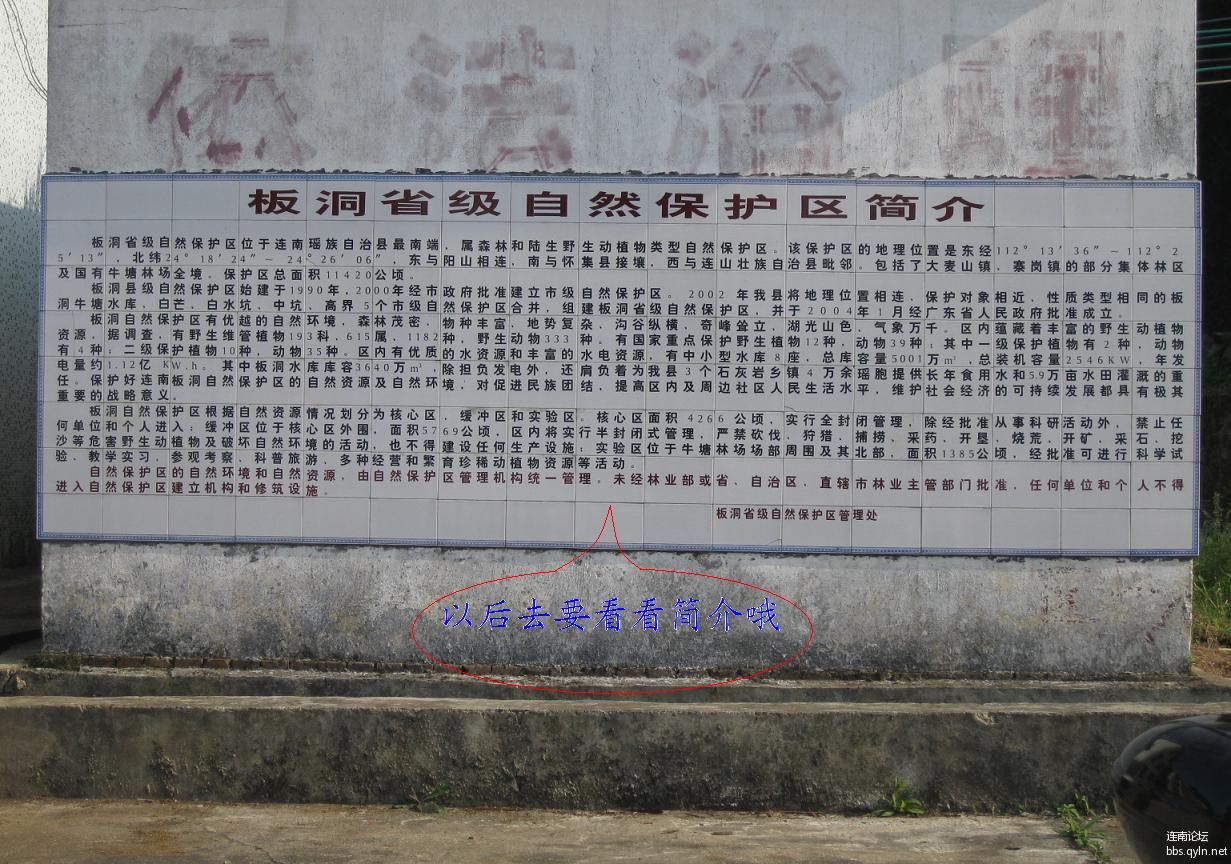 依法治
板洞省级自然保护区简介
板洞省级自然保护区位于连南瑶族自治县最南端，属森林和陆生野生动植物类型自然保护区。该保护区的地理位置是东经112°13′36″～112°2
5′13″，北纬24°18′24″～24°26′06″，东与阳山相连，南与怀集县接壤，西与连山壮族自治县毗邻。包括了大麦山镇、寨岗镇的部分集体林区
及国有牛塘林场全境。保护区总面积11420公顷。
板洞县级自然保护区始建于1990年，2000年经市政府批准建立市级自然保护区。2002年我县将地理位置相连、保护对象相近、性质类型相同的板
洞牛塘水库、白芒、白水坑、中坑、高界5个市级自然保护区合并，组建板洞省级自然保护区，并于2004年1月经广东省人民政府批准成立。
板洞自然保护区有优越的自然环境，森林茂密，物种丰富，地势复杂、沟谷纵横、奇峰耸立，湖光山色、气象万千。区内蕴藏着丰富的野生动植物
资源，据调查，有野生维管植物193科，615属、1182种，野生动物333种。有国家重点保护野生植物12种，动物39种；其中一级保护植物有2种，动物
有4种；二级保护植物10种，动物35种。区内有优质的水资源和丰富的水电资源，有中小型水库8座，总库容量5001万m³，总装机容量2546KW，年发
电量约1.12亿KW.h。其中板洞水库库容3640万m³，除担负发电外，还肩负着为我县3个石灰岩乡镇4万余瑶胞提供长年食用水和5.9万亩水田灌溉的重
任。保护好连南板洞自然保护区的自然资源及自然环境，对促进民族团结，提高区内及周边社区人民生活水平，维护社会经济的可持续发展都具有极其
重要的战略意义。
板洞自然保护区根据自然资源情况划分为核心区，缓冲区和实验区。核心区面积4266公顷，实行全封闭管理，除经批准从事科研活动外，禁止任
何单位和个人进入；缓冲区位于核心区外围，面积5769公顷，区内将实行半封闭式管理，严禁砍伐，狩猎，捕捞、采药、开垦、烧荒、开矿，采石、挖
沙等危害野生动植物及破坏自然环境的活动，也不得建设任何生产设施；实验区位于牛塘林场场部周围及其北部，面积1385公顷，经批准可进行科学试
验、教学实习，参观考察、科普旅游，多种经营和繁育珍稀动植物资源等活动。
自然保护区的自然环境和自然资源，由自然保护区管理机构统一管理。未经林业部或省、自治区、直辖市林业主管部门批准，任何单位和个人不得
进入自然保护区建立机构和修筑设施。
板洞省级自然保护区管理处
以后去要看看简介哦
连南论坛
bbs.qyln.net